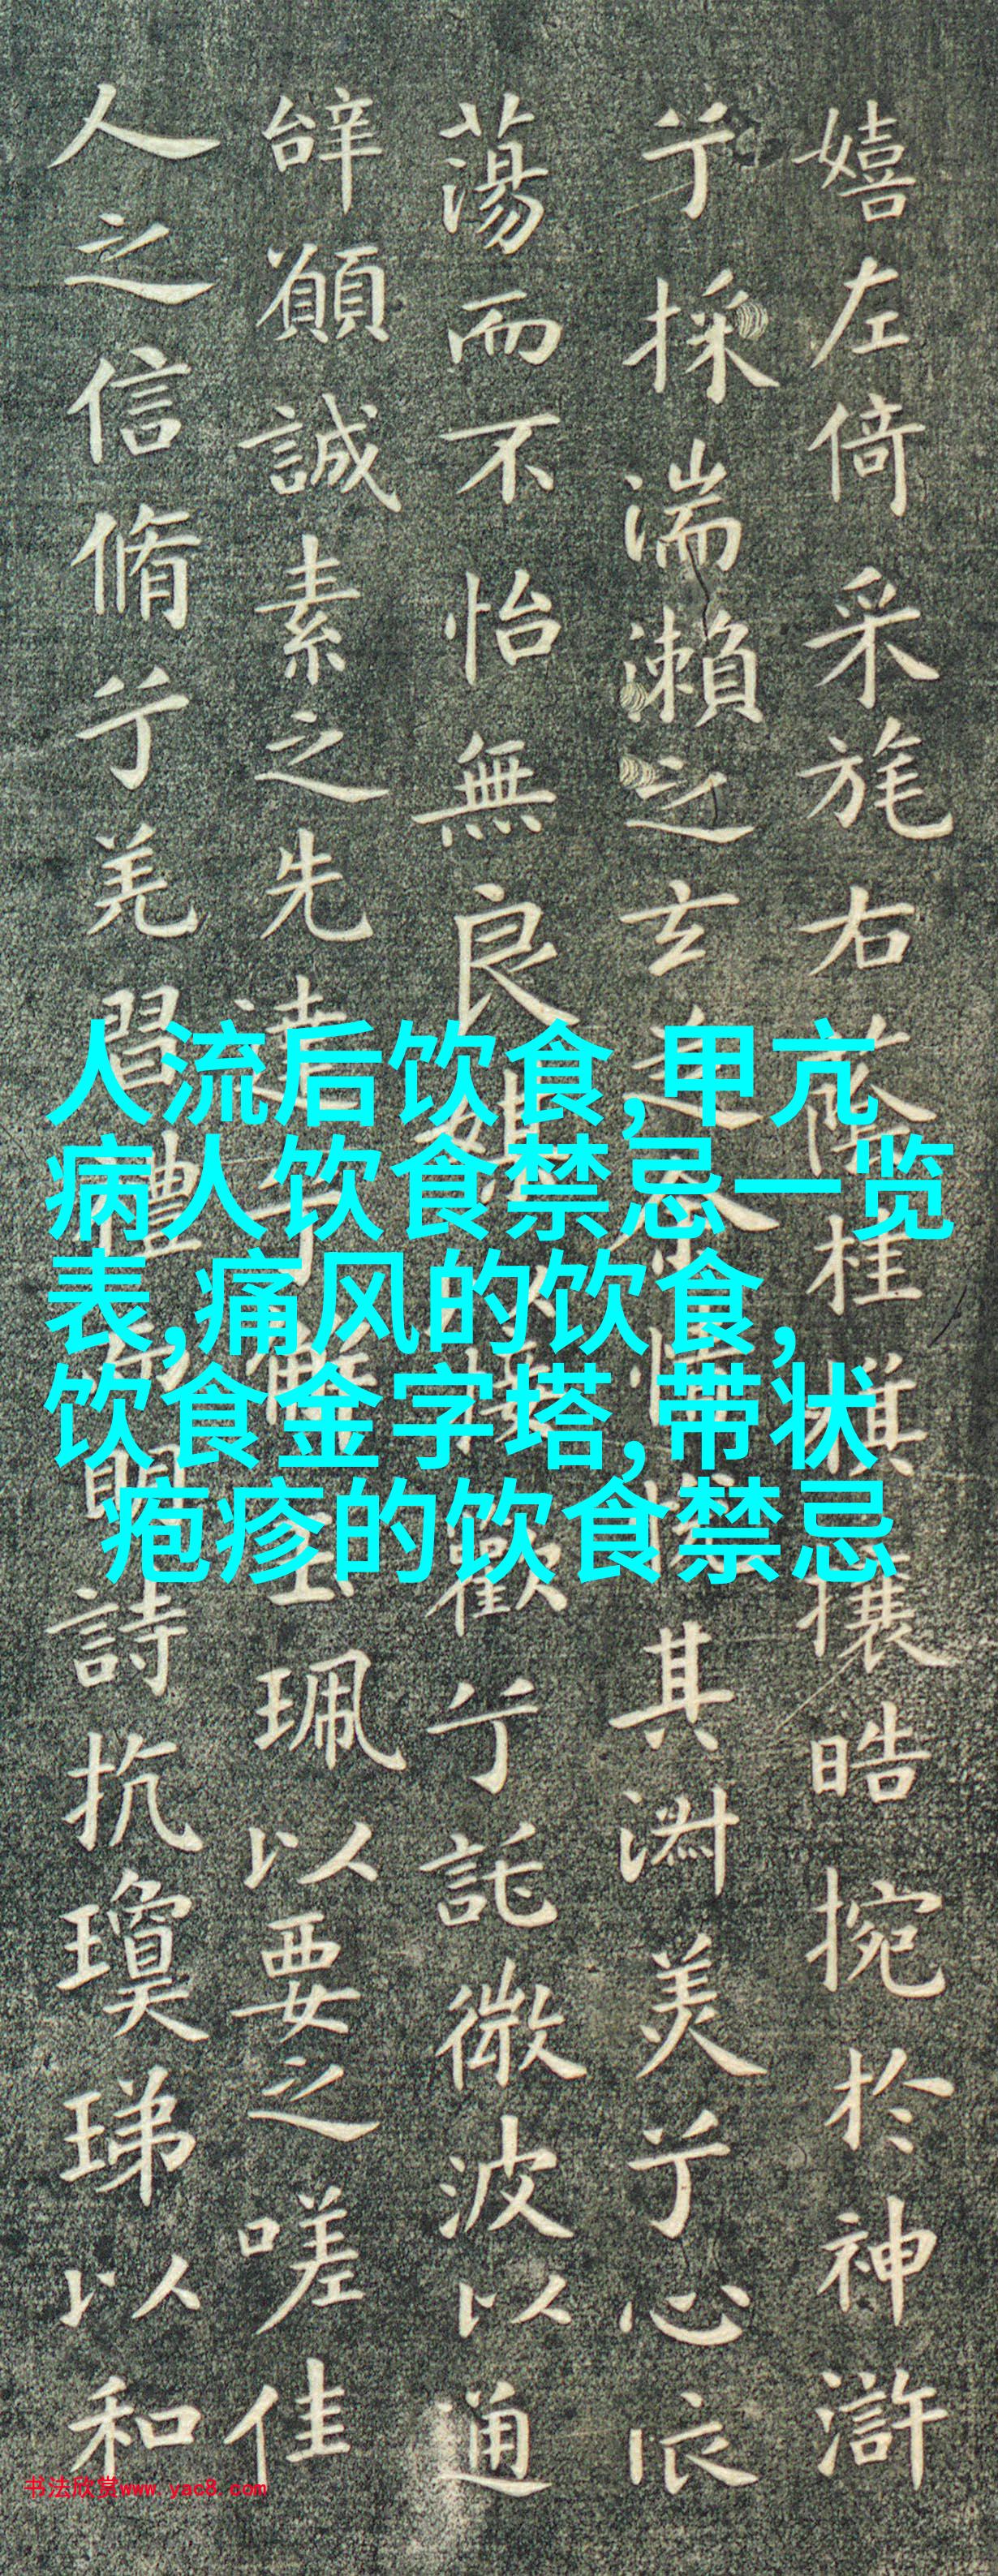 嬉左倚采旄右蔭桂旗攘皓捥於神滸
兮採湍瀨之玄芝余情悅其淑美兮心振
蕩而不怡無良媒以接歡兮託微波以通
辭願誠素之先達兮解玉珮以要之嗟佳
人之信脩兮羌習禮而明詩抗瓊珶以和
人流后饮食,甲亢
病人饮食禁忌一览
表,痛风的饮食,
饮食金字塔,带状
疱疹的饮食禁忌
书法欣赏www.yac8.com